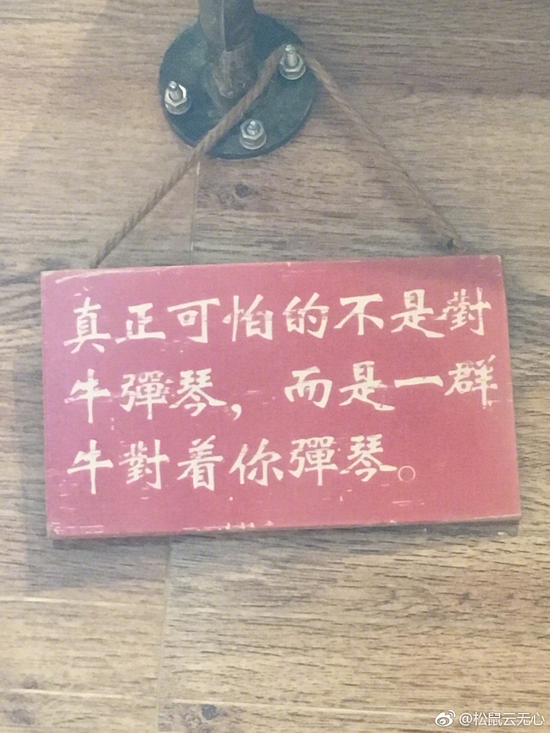 真正可怕的不是對
牛彈琴，而是一群
牛對着你彈琴。
@松鼠云无心